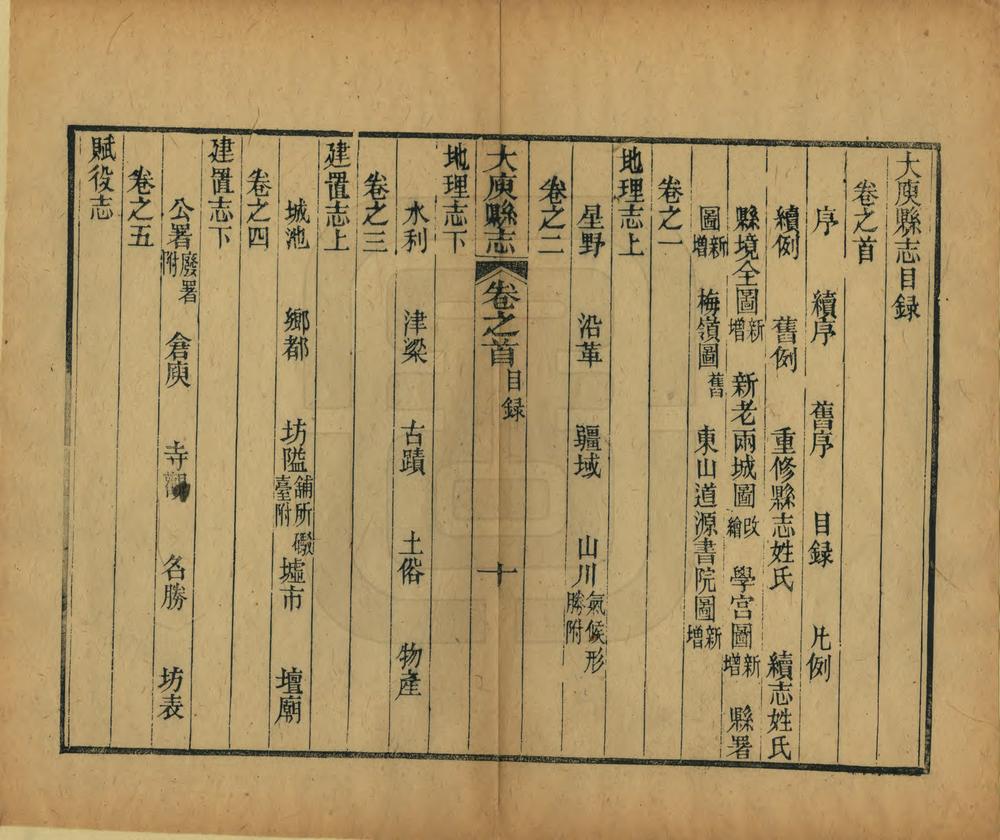 大庾縣志目録
卷之首
序 續序 舊序 目録 凡例
續例 舊例 重修縣志姓氏 續志姓氏
縣境全圖新增 新老兩城圖改繪 學宫圖新增 縣署
圖新增 梅嶺圖舊 東山道源書院圖新增
卷之一
地理志上
星野 沿革 疆域 山川氣候形勝附
卷之二
大庾縣志 卷之首 目録 十
地理志下
水利 津梁 古蹟 土俗 物產
卷之三
建置志上
城池 鄉都 坊隘舖所礮臺附 墟市 壇廟
卷之四
建置志下
公署廢署附 倉庾 寺觀 名勝 坊表
卷之五
賦役志